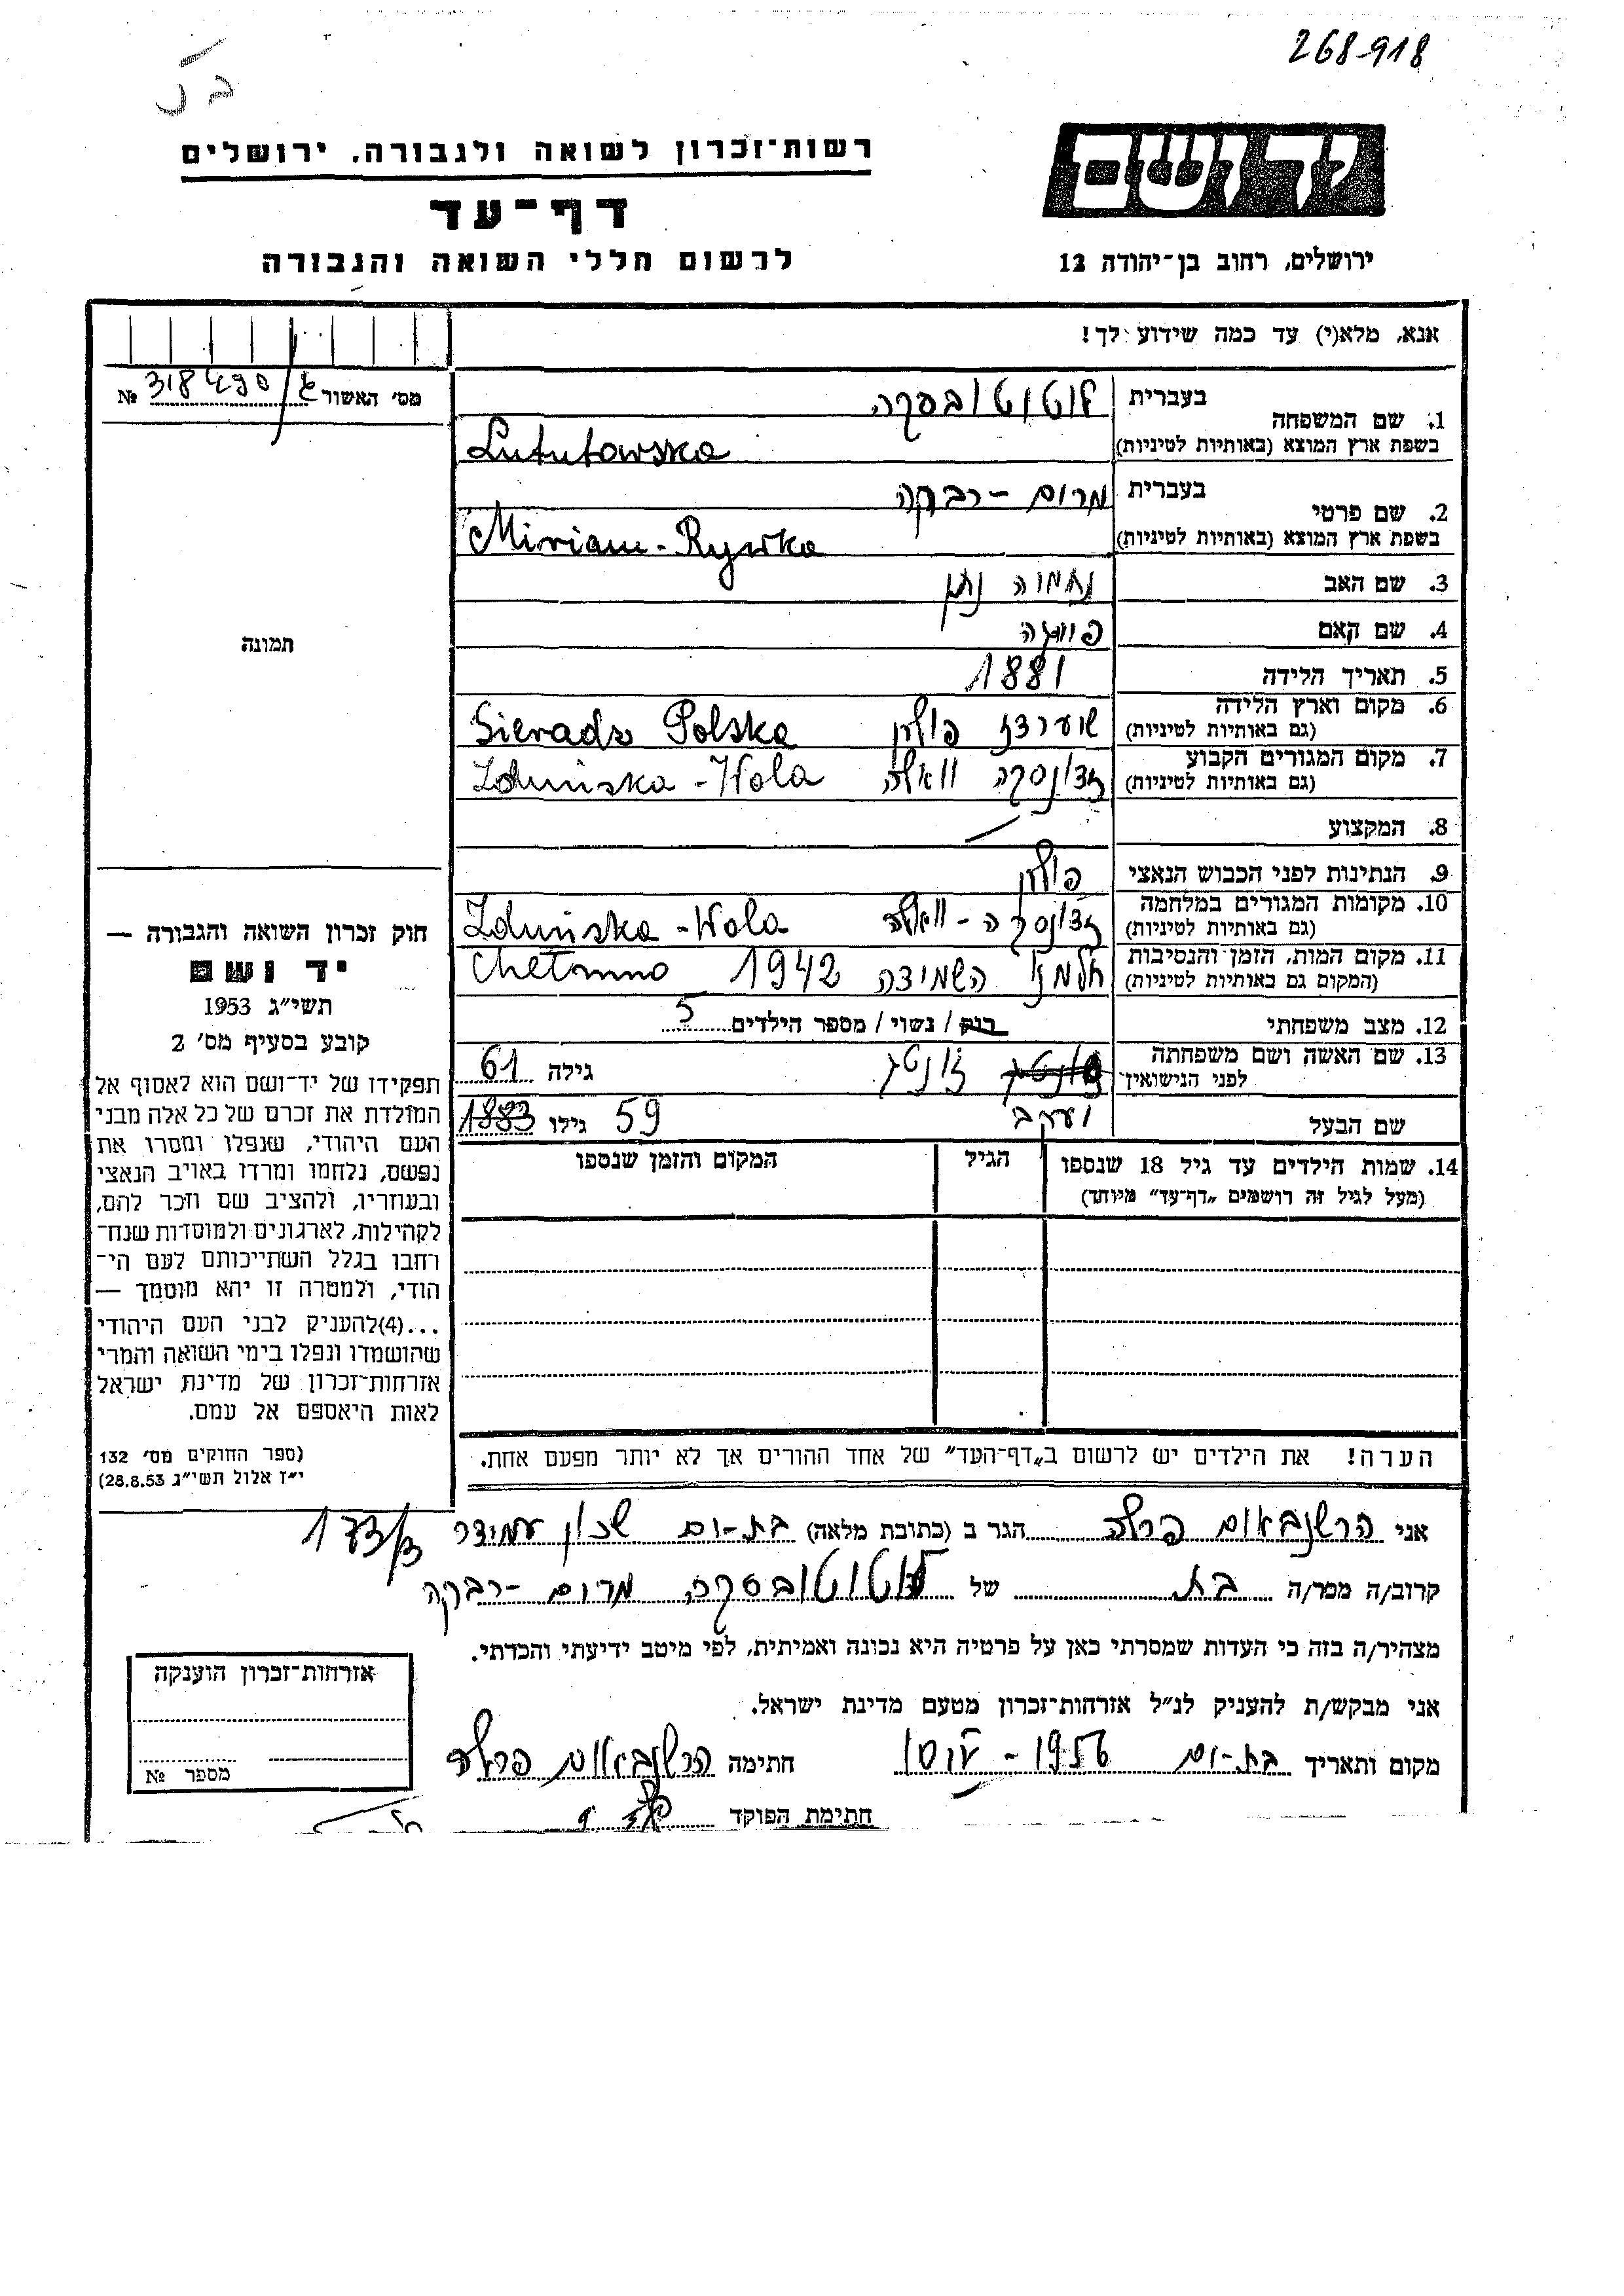 268918
רשות־זכרון לשואה ולגבורה, ירושלים
יד ושם
דף־עד
לרשום חללי השואה והגבורה
ירושלים, רחוב בן־יהודה 12
אנא, מלא(י) עד כמה שידוע לך!
מס׳ האשור № 318490
1. שם המשפחה
בעברית לוטוטובסקה
בשפת ארץ המוצא (באותיות לטיניות) Lututowska
2. שם פרטי
בעברית מרים - רבקה
בשפת ארץ המוצא (באותיות לטיניות) Miriam - Rywka
3. שם האב נחמיה נתן
4. שם האם
5. תאריך הלידה 1881
6. מקום וארץ הלידה
(גם באותיות לטיניות) שערדז פולין Sieradz Polska
7. מקום המגורים הקבוע
(גם באותיות לטיניות) זדונסקה וואלה Zduńska - Wola
8. המקצוע
9. הנתינות לפני הכבוש הנאצי פולין
10. מקומות המגורים במלחמה
(גם באותיות לטיניות) זדונסקה - וואלה Zduńska - Wola
11. מקום המות, הזמן והנסיבות
(המקום גם באותיות לטיניות) חלמנו השמידה 1942 Chełmno
12. מצב משפחתי רוק / נשוי / מספר הילדים 5
13. שם האשה ושם משפחתה
לפני הנישואין זונטג גילה 61
שם הבעל יעקב 59 גילו 1883
14. שמות הילדים עד גיל 18 שנספו
(מעל לגיל זה רושמים „דף־עד” מיוחד)
הגיל
המקום והזמן שנספו
הערה! את הילדים יש לרשום ב„דף־העד” של אחד ההורים אך לא יותר מפעם אחת.
תמונה
חוק זכרון השואה והגבורה —
יד ושם
תשי״ג 1953
קובע בסעיף מס׳ 2
תפקידו של יד־ושם הוא לאסוף אל
המולדת את זכרם של כל אלה מבני
העם היהודי, שנפלו ומסרו את
נפשם, נלחמו ומרדו באויב הנאצי
ובעוזריו, ולהציב שם וזכר להם,
לקהילות, לארגונים ולמוסדות שנח־
רחבו בגלל השתייכותם לעם הי־
הודי, ולמטרה זו יהא מוסמך —
...(4)להעניק לבני העם היהודי
שהושמדו ונפלו בימי השואה והמרי
אזרחות־זכרון של מדינת ישראל
לאות היאספם אל עמם.
(ספר החוקים מס׳ 132
י״ז אלול תשי״ג 28.8.53)
אני הרשנבאום פרלה הגר ב (כתובת מלאה) בת-ים שכון עמידר 173/3
קרוב/ה מכר/ה בת של לוטוטובסקה מרים - רבקה
מצהיר/ה בזה כי העדות שמסרתי כאן על פרטיה היא נכונה ואמיתית, לפי מיטב ידיעתי והכרתי.
אני מבקש/ת להעניק לנ״ל אזרחות־זכרון מטעם מדינת ישראל.
מקום ותאריך בת-ים 1956 חתימה הרשנבאום פרלה
חתימת הפוקד
אזרחות־זכרון הוענקה
מספר №